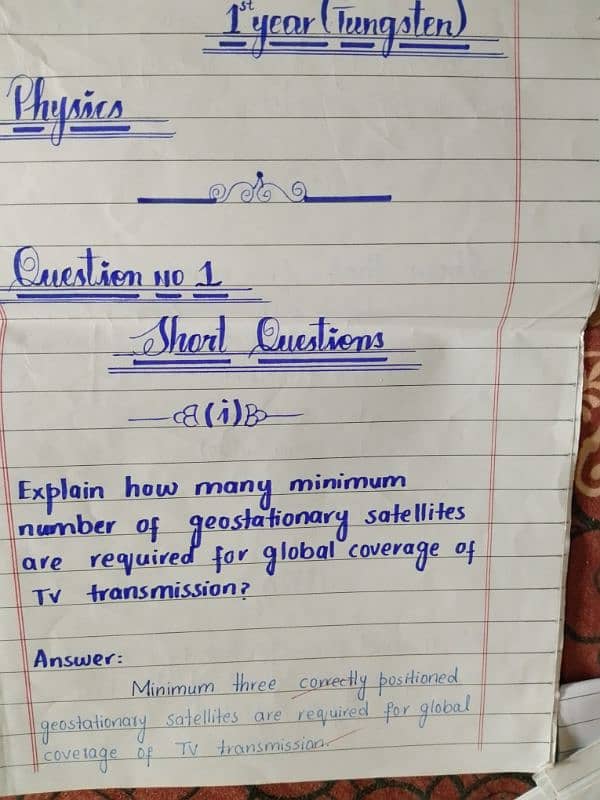 1st year (Tungsten)
Physics
Question NO 1
Short Questions
(i)
Explain how many minimum
number of geostationary satellites
are required for global coverage of
TV transmission?
Answer:
Minimum three correctly positioned
geostationary satellites are required for global
coverage of TV transmission.